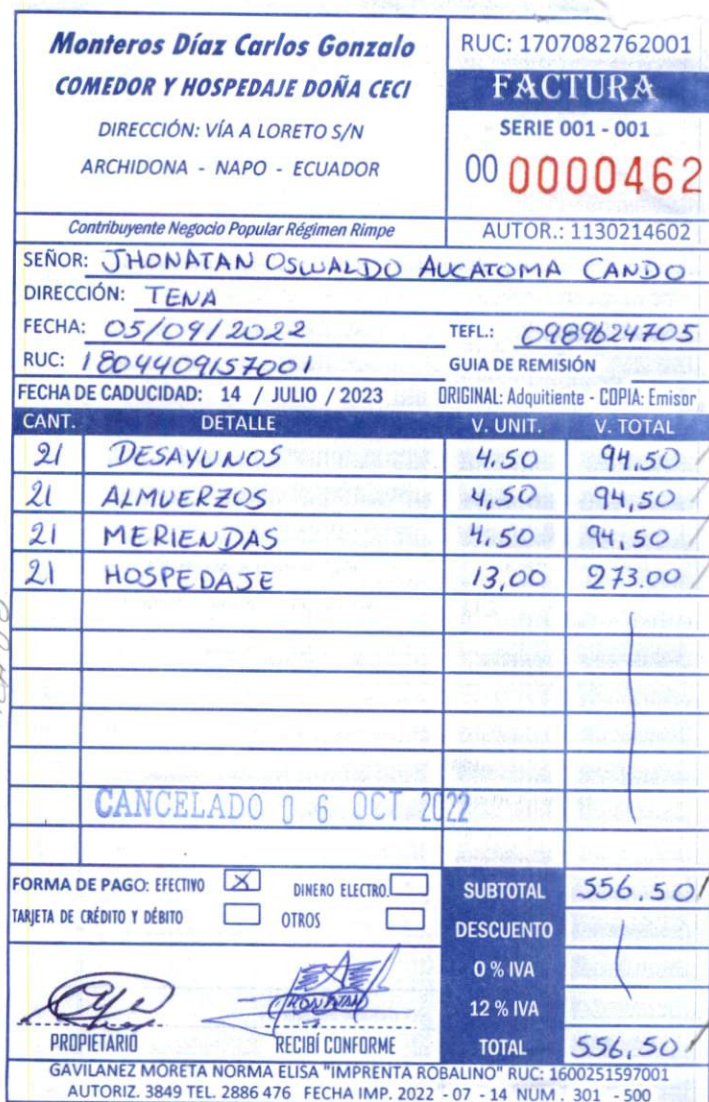 Monteros Díaz Carlos Gonzalo
COMEDOR Y HOSPEDAJE DOÑA CECI
DIRECCIÓN: VÍA A LORETO S/N
ARCHIDONA - NAPO - ECUADOR
Contribuyente Negocio Popular Régimen Rimpe
RUC: 1707082762001
FACTURA
SERIE 001 - 001
00 0000462
AUTOR.: 1130214602
SEÑOR: JHONATAN OSWALDO AUCATOMA CANDO
DIRECCIÓN: TENA
FECHA: 05/09/2022 TEFL.: 0989624705
RUC: 1804409157001 GUIA DE REMISIÓN
FECHA DE CADUCIDAD: 14 / JULIO / 2023 ORIGINAL: Adquitiente - COPIA: Emisor
CANT. DETALLE V. UNIT. V. TOTAL
21 DESAYUNOS 4.50 94.50
21 ALMUERZOS 4,50 94,50
21 MERIENDAS 4.50 94,50
21 HOSPEDAJE 13,00 273.00
CANCELADO 0 6 OCT 2022
FORMA DE PAGO: EFECTIVO X DINERO ELECTRO.
TARJETA DE CRÉDITO Y DÉBITO OTROS
SUBTOTAL 556.50
DESCUENTO
0 % IVA
12 % IVA
TOTAL 556.50
JHONATAN
PROPIETARIO RECIBÍ CONFORME
GAVILANEZ MORETA NORMA ELISA "IMPRENTA ROBALINO" RUC: 1600251597001
AUTORIZ. 3849 TEL. 2886 476 FECHA IMP. 2022 - 07 - 14 NUM . 301 - 500